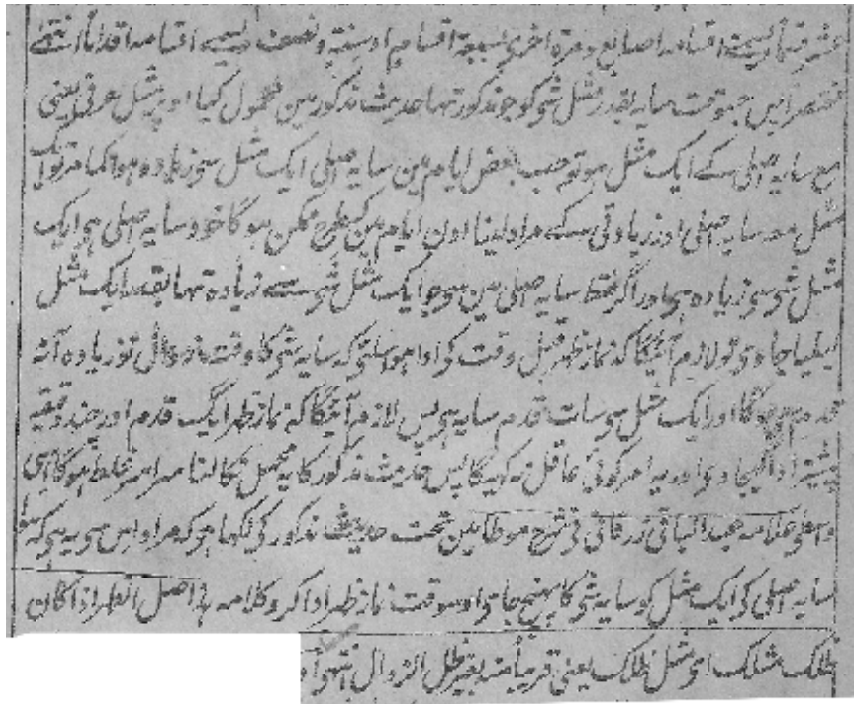 عشر قسماً ویسمیٰ اقسامہ اصابع ومرة اخرى بسبعة اقسام او ستة ونصف ویسمى اقسامہ اقداماً انتہیٰ
مختصراً پس جبوقت سایہ بقدر مثل شی کو جو مذکور تہا حدیث مذکور مین محمول کیا اوپر مثل عرفی یعنی
مع سایہ اصلی کے ایک مثل ہو تو جب بعض ایام مین سایہ اصلی ایک مثل سی زیادہ ہوا کما مر تو ایک
مثل معہ سایہ اصلی اور زیادتی کے مراد لینا اون ایام مین کسطرح ممکن ہوگا خود سایہ اصلی ہی ایک
مثل شی سی زیادہ ہی اور اگر فقط سایہ اصلی مین سی جو ایک مثل شی سے زیادہ تہا بقدر ایک مثل
لیلیا جاوی تو لازم آئیگا کہ نماز ظہر قبل وقت کو ادا ہو اسلئی کہ سایہ شی کا وقت زوال تو زیادہ آٹہ
قدم ہی ہوگا اور ایک مثل ہی سات قدم سایہ ہی پس لازم آئیگا کہ نماز ظہر ایک قدم اور چند دقیقہ
پیشتر ادا کیجاوی اور یہ امر کوئی عاقل نہ کہیگا پس حدیث مذکور کا یہ محمل نکالنا سراسر غلط ہوگا اسی
واسطی علامہ عبد الباقی زرقانی نی شرح موطا مین تحت حدیث مذکور کی لکہا ہی کہ مراد اس سی یہ ہی کہ سوا
سایہ اصلی کی ایک مثل کو سایہ شی کا پہنچ جاوی اوسوقت نماز ظہر ادا کرو کلامہ ہذا صل الظہر اذا کان
ظلک مثلک ای مثل ظلک یعنی قریباً منہ بغیر ظل الزوال انتہیٰ